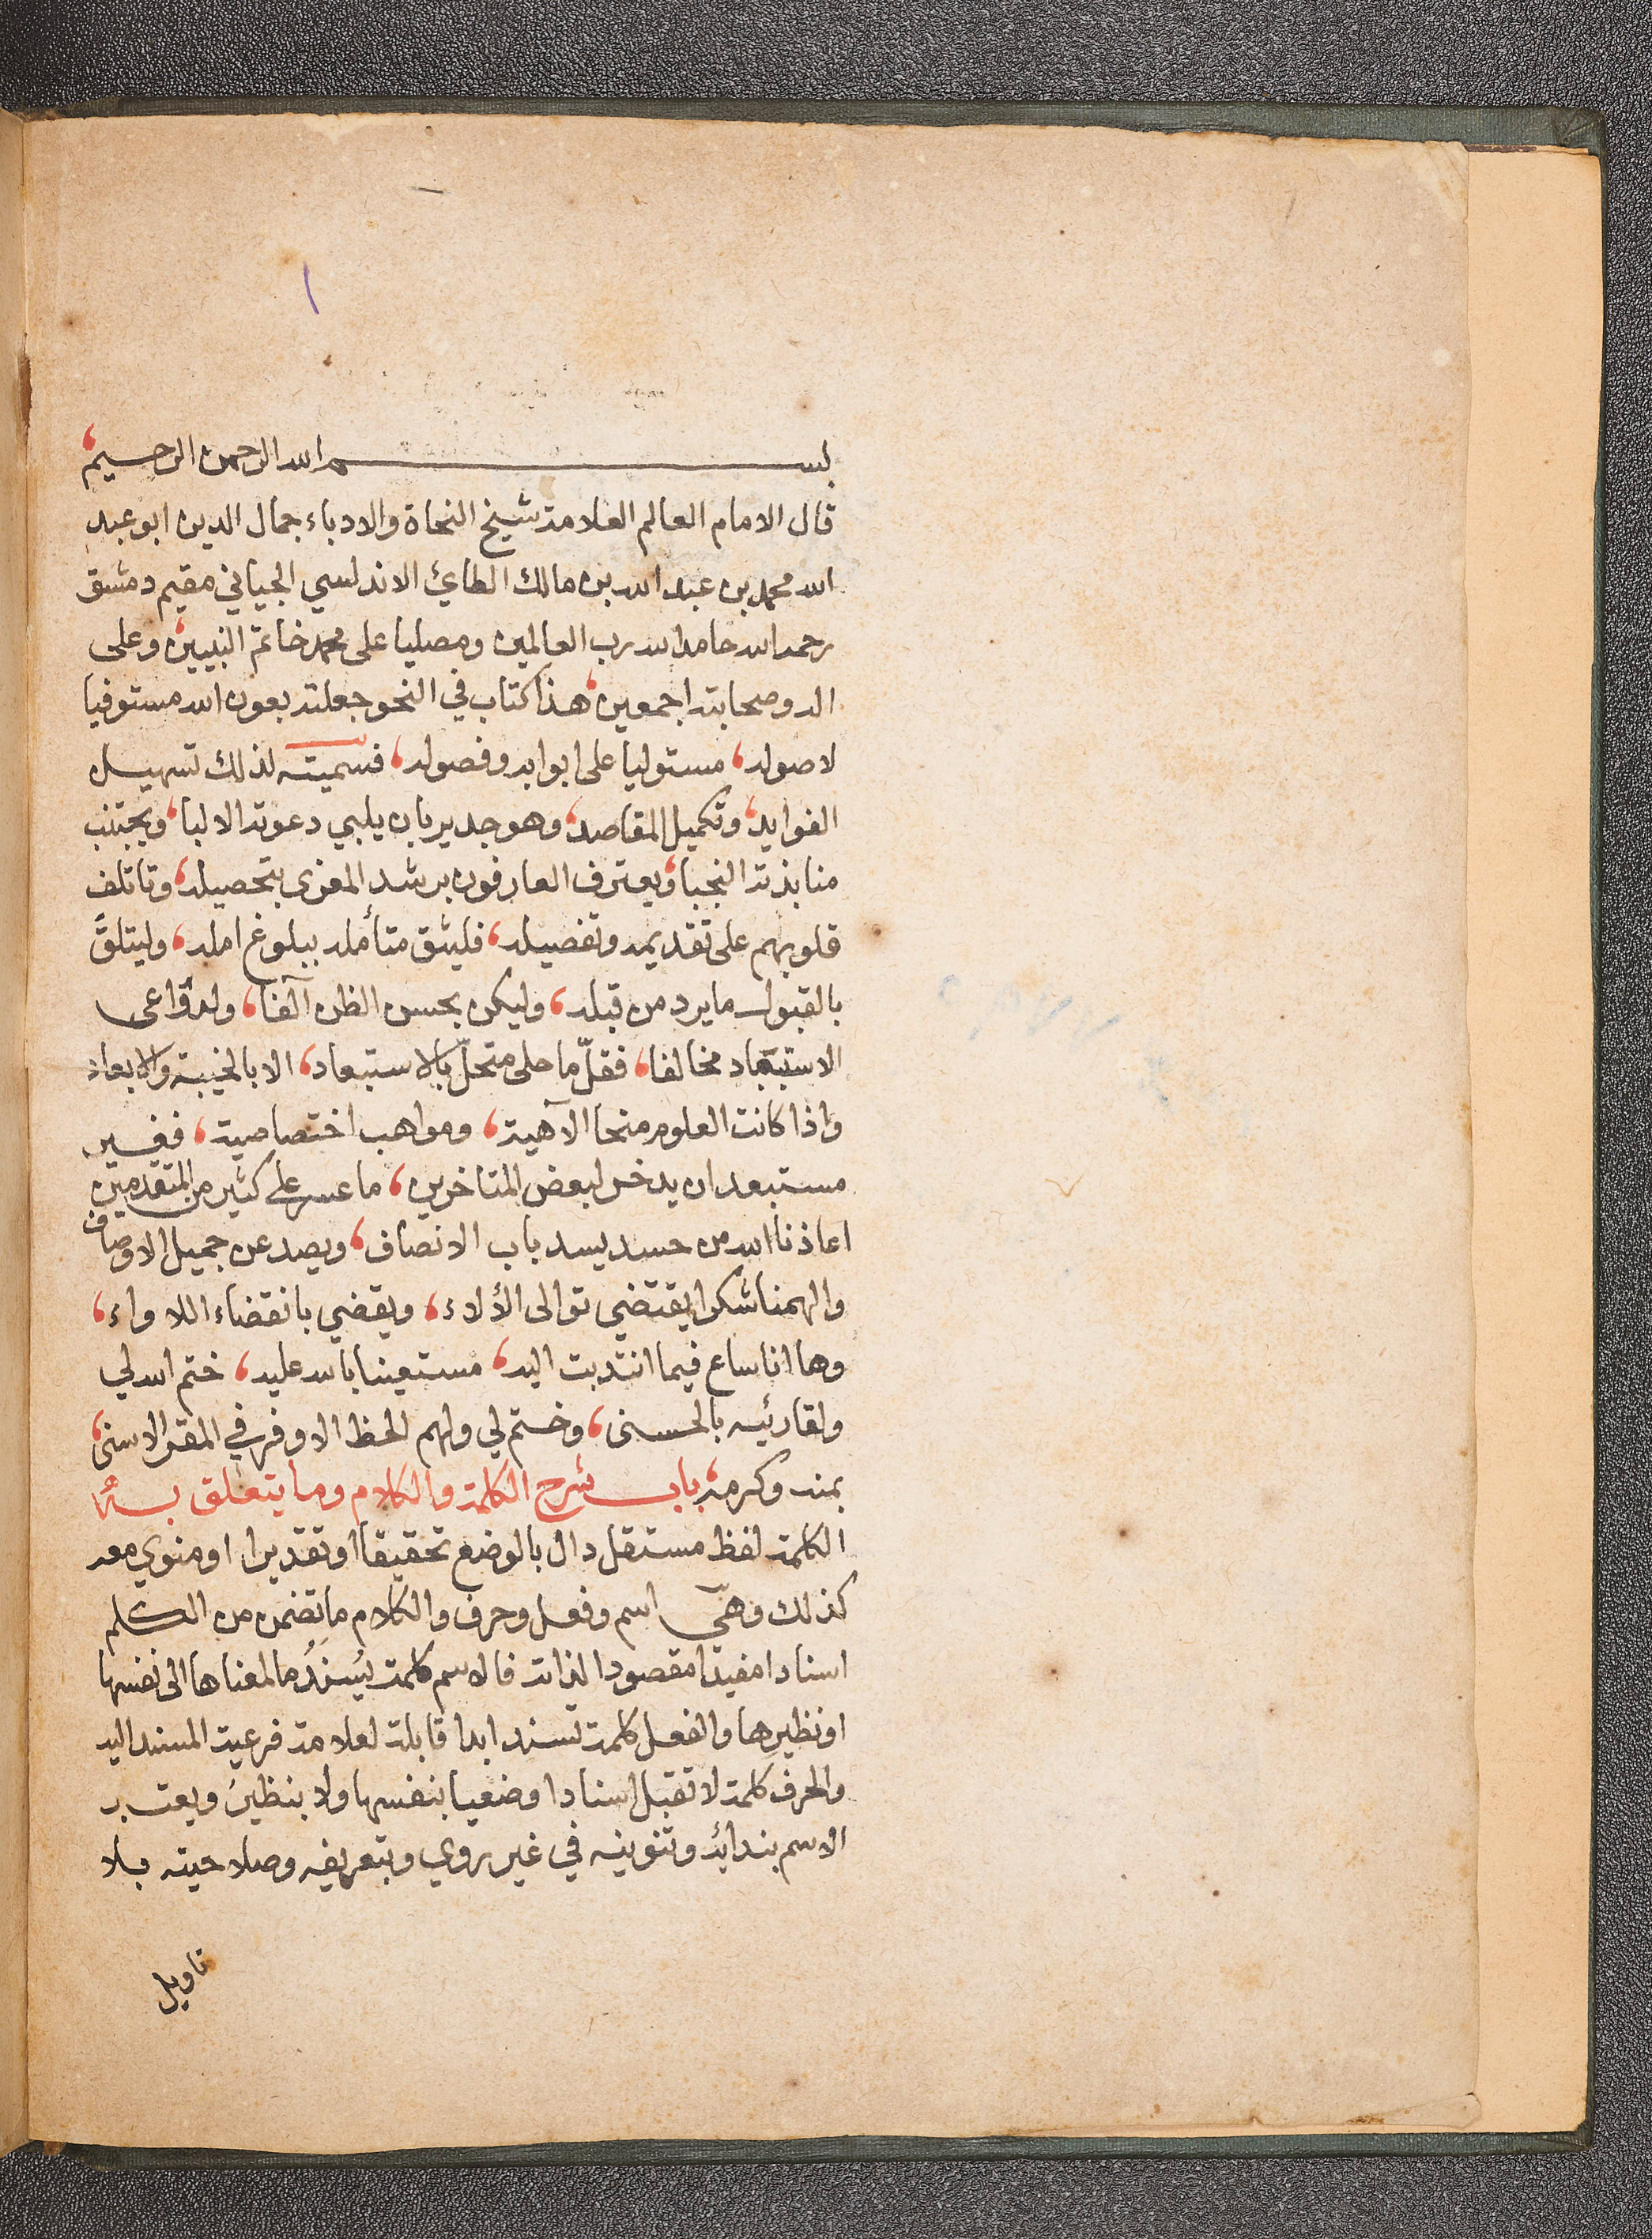 ١
بسم الله الرحمن الرحيم،
قال الامام العالم العلامة شيخ النحاة والادباء جمال الدين ابو عبد
الله محمد بن عبد الله بن مالك الطائي الاندلسي الجياني مقيم دمشق
رحمه الله حامدا لله رب العالمين ومصليا على محمد خاتم النبيين، وعلى
اله وصحابته اجمعين، هذا كتاب في النحو جعلته بعون الله مستوفيا
لاصوله، مستوليا على ابوابه وفصوله، فسميته لذلك تسهيل
الفوايد، وتكميل المقاصد، وهو جدير بان يلبي دعوته الالبا، ويجتنب
منابذته النجبا، ويعترف العارفون برشد المغرى بتحصيله، وتاتلف
قلوبهم على تقديمه وتفصيله، فليثق متأمله ببلوغ امله، وليتلقَّ
بالقبول ما يرد من قبله، وليكن بحسن الظن آلفا، ولدواعى
الاستبعاد مخالفا، فقلّ ما حلى متحلّ بالاستبعاد، الا بالخيبة والابعاد
واذا كانت العلوم منحا الآهية، ومواهب اختصاصية، فغير
مستبعد ان يدخر لبعض المتاخرين، ما عسر على كثير من المتقدمين
اعاذنا الله من حسد يسد باب الانصاف، ويصد عن جميل الاوصاف
والهمنا شكرا يقتضي توالى الألاء، ويقضي بانقضاء اللاواء،
وها انا ساع فيما انتدبت اليه، مستعينا بالله عليه، ختم الله لي
ولقارئيه بالحسنى، وختم لي ولهم الحظ الاوفر في المقر الاسنى،
بمنه وكرمه، باب شرح الكلمة والكلام وما يتعلق به
الكلمة لفظ مستقل دال بالوضع تحقيقا او تقديرا او منوي معه
كذلك وهي اسم وفعل وحرف والكلام ما تضمن من الكلم
اسنادا مفيدا مقصودا لذاته فالاسم كلمة يُسندُ ما لمعناها الى نفسها
او نظيرها والفعل كلمة تسند ابدا قابلة لعلامة فرعية المسند اليه
والحرف كلمة لا تقبل اسنادا وضعيا بنفسها ولا بنظير ويعتبر
الاسم بندائه وتنوينه في غير روي وبتعريفه وصلاحيته بلا
تاويل